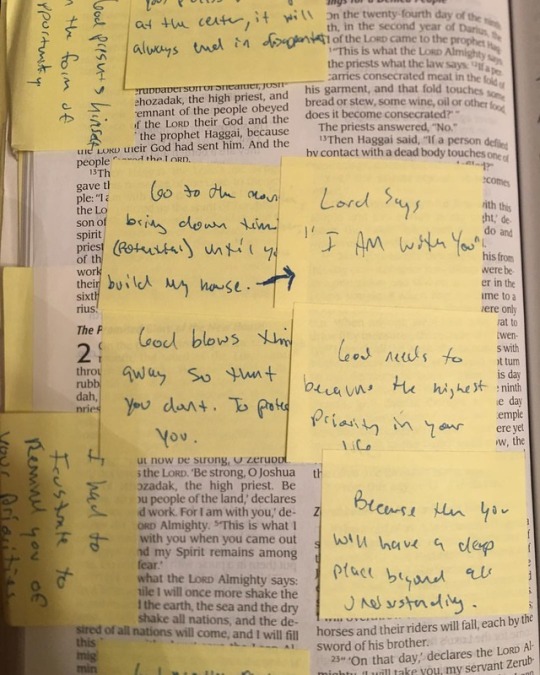 God presents himself
in the form of
opportunity
at the center, it will
always end in
erubbabel son of Shealtiel, Josh-
ehozadak, the high priest, and
emnant of the people obeyed
f the LORD their God and the
the prophet Haggai, because
the LORD their God had sent him. And the
people the LORD.
13Th
gave t
ple: "I a
the Lo
son of
spirit
priest
of th
work
their
sixth
rius
The P
2
throu
rubb
dah,
Go to the
bring down
(Potential) until y
build my house. →
God blows
away so that
You dont. To
You.
I had to
frustrate to
Remind you of
your priorities
ut now be strong, O Zerubb
s the LORD. 'Be strong, O Joshua
ozadak, the high priest. Be
u people of the land,' declares
d work. For I am with you,' de-
ORD Almighty. 5"This is what I
with you when you came out
nd my Spirit remains among
fear.'
what the LORD Almighty says:
ile I will once more shake the
l the earth, the sea and the dry
shake all nations, and the de-
sired of all nations will come, and I will fill
this
mig
min
ngs for a Defiled People
On the twenty-fourth day of the
th, in the second year of Darius,
of the LORD came to the prophet Hag
"This is what the LORD Almighty says
the priests what the law says: 12If a pe
carries consecrated meat in the fold of
his garment, and that fold touches some
bread or stew, some wine, oil or other food
does it become consecrated?'"
The priests answered, "No."
13Then Haggai said, "If a person defiled
by contact with a dead body touches one of
ecomes
ith this
ght,' de-
do and
his from
were be-
er in the
me to a
ere only
wen-
s with
ot turn
is day
ninth
e day
emple
ere yet
w, the
Lord Says
"I AM with You"
God needs to
became the highest
Priority in your
life
Because then you
will have a deep
place beyond all
Understanding.
horses and their riders will fall, each by the
sword of his brother.
23"'On that day,' declares the LORD Al-
mighty, 'I will take you, my servant Zerub-